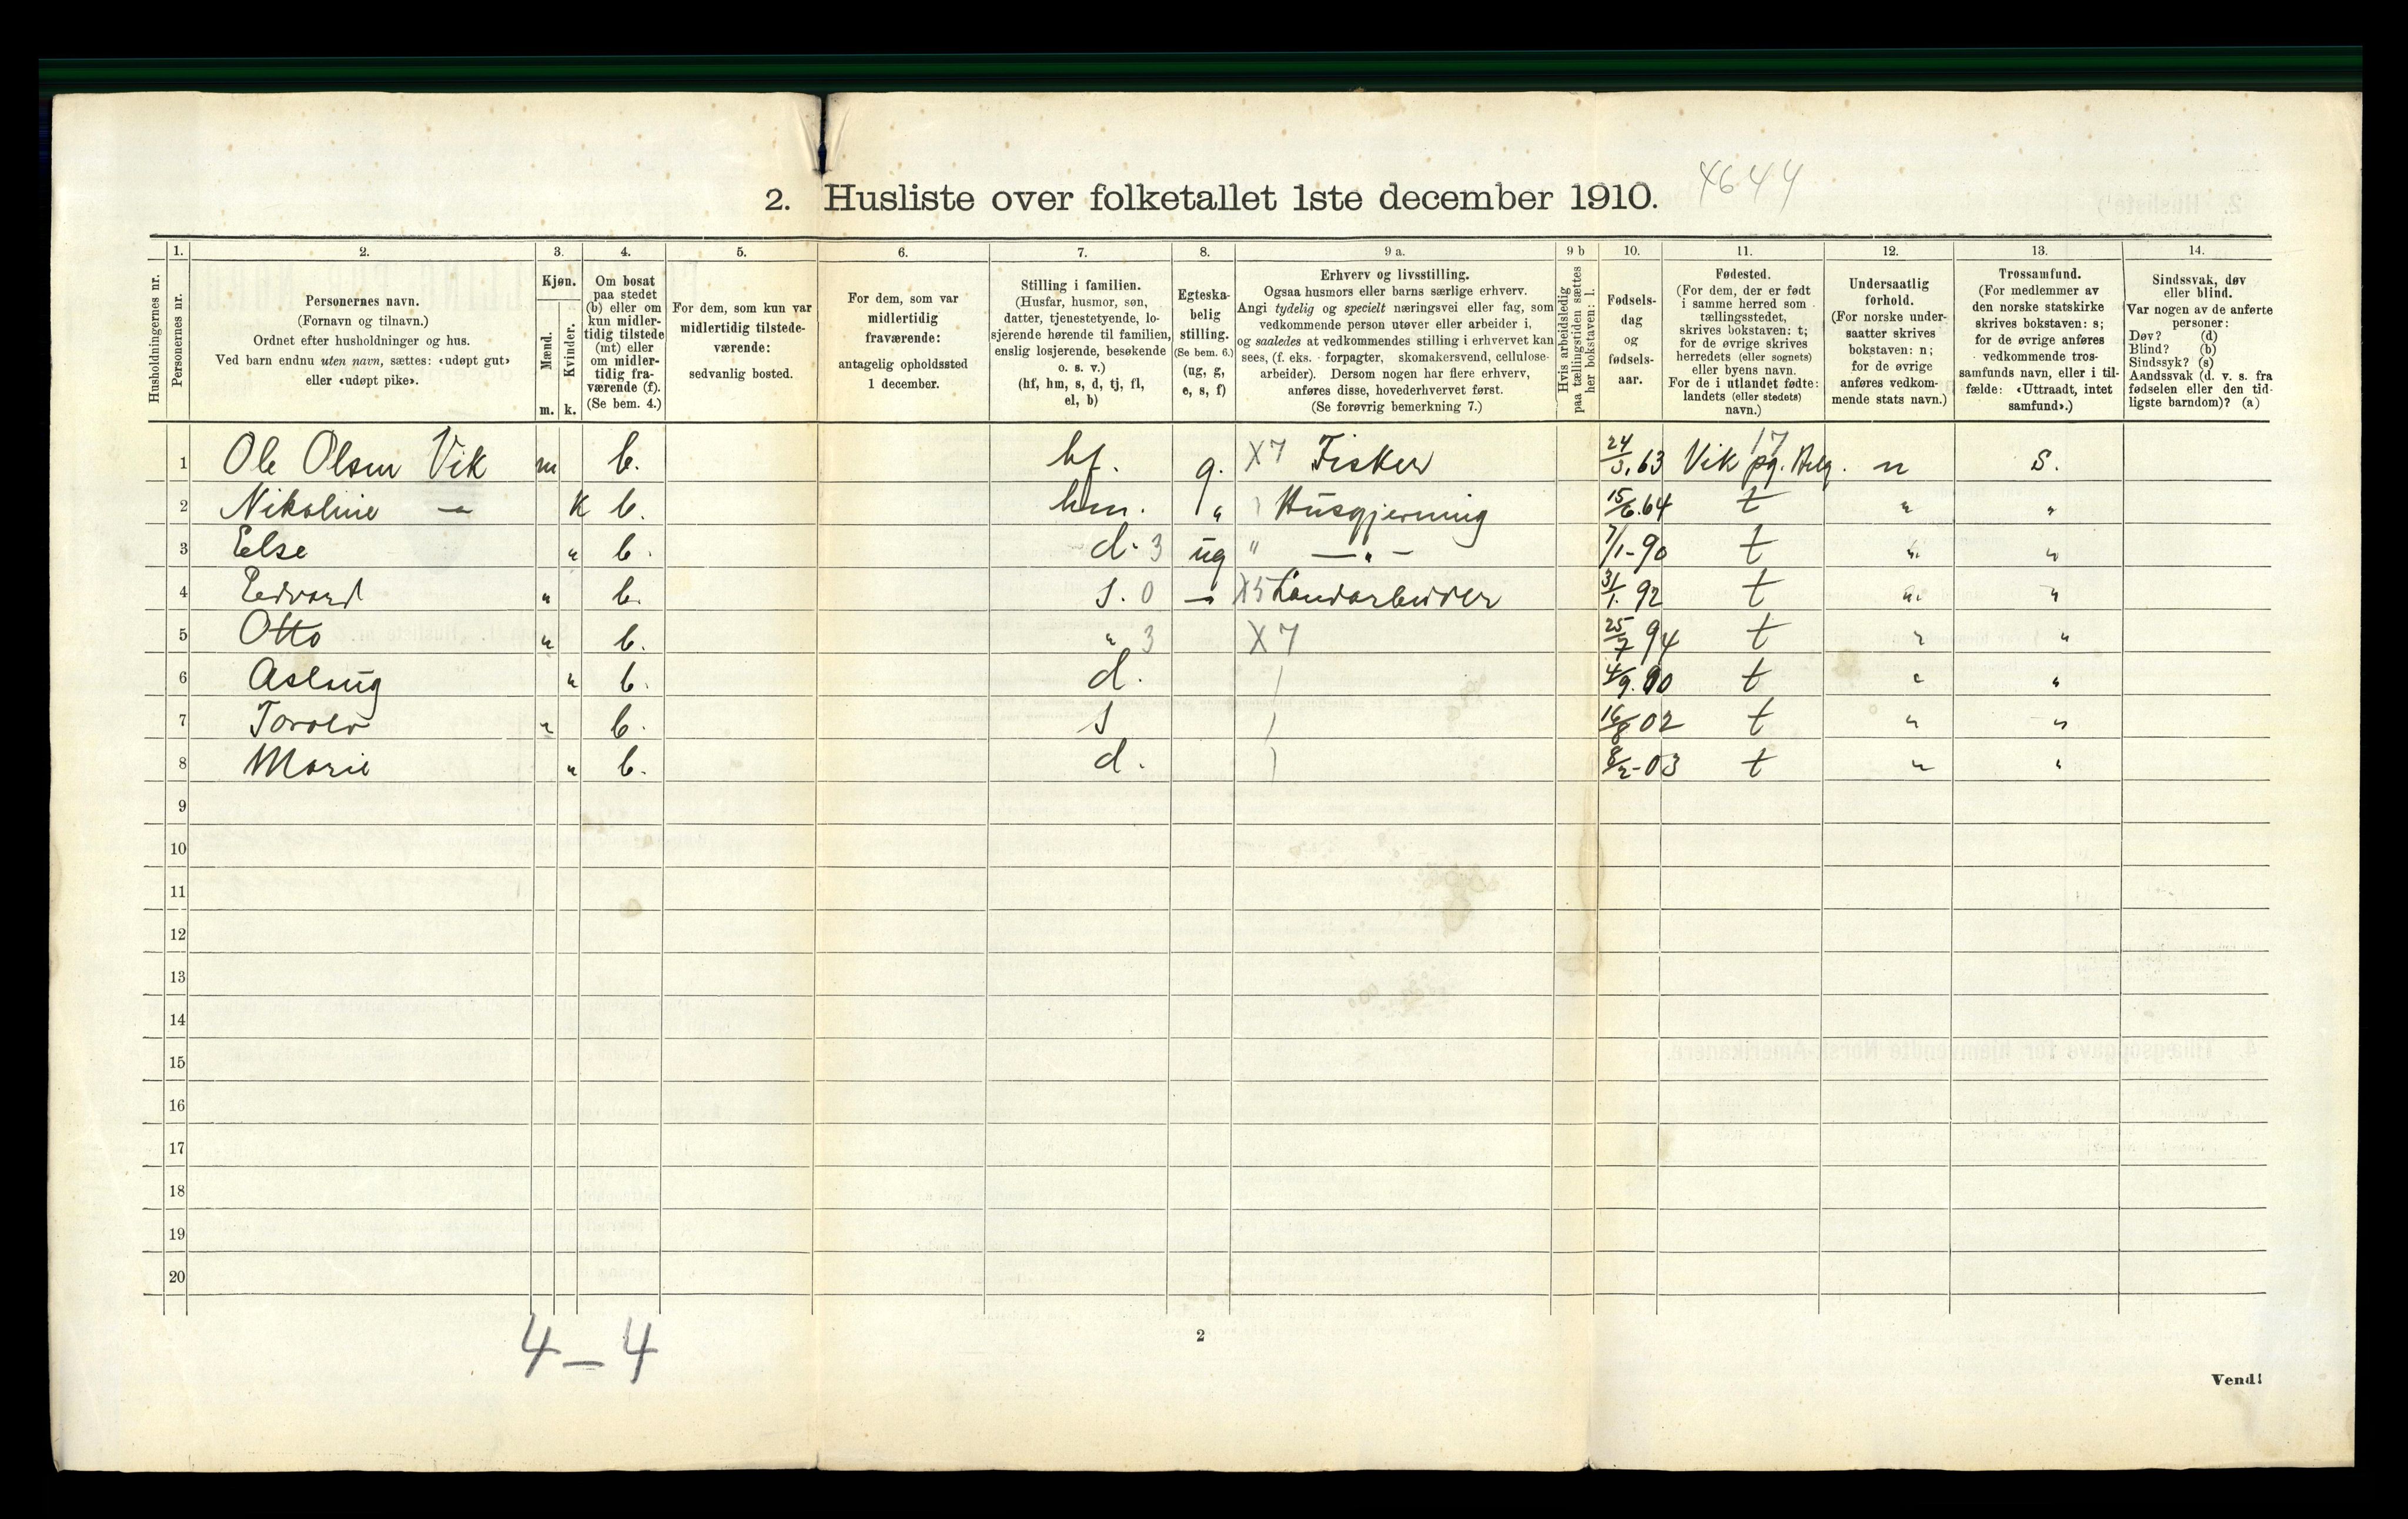 2. Husliste over folketallet 1ste december 1910. 4644
Husholdningernes nr.
1. Personernes nr.
2. Personernes navn.
(Fornavn og tilnavn.)
Ordnet efter husholdninger og hus.
Ved barn endnu uten navn, sættes: «udøpt gut»
eller «udøpt pike».
3. Kjøn.
Mænd. m.
Kvinder. k.
4. Om bosat
paa stedet
(b) eller om
kun midler-
tidig tilstede
(mt) eller
om midler-
tidig fra-
værende (f).
(Se bem. 4.)
5. For dem, som kun var
midlertidig tilstede-
værende:
sedvanlig bosted.
6. For dem, som var
midlertidig
fraværende:
antagelig opholdssted
1 december.
7. Stilling i familien.
(Husfar, husmor, søn,
datter, tjenestetyende, lo-
sjerende hørende til familien,
enslig losjerende, besøkende
o. s. v.)
(hf, hm, s, d, tj, fl,
el, b)
8. Egteska-
belig
stilling.
(Se bem. 6.)
(ug, g,
e, s, f)
9 a. Erhverv og livsstilling.
Ogsaa husmors eller barns særlige erhverv.
Angi tydelig og specielt næringsvei eller fag, som
vedkommende person utøver eller arbeider i,
og saaledes at vedkommendes stilling i erhvervet kan
sees, (f. eks. forpagter, skomakersvend, cellulose-
arbeider). Dersom nogen har flere erhverv,
anføres disse, hovederhvervet først.
(Se forøvrig bemerkning 7.)
9 b Hvis arbeidsledig
paa tællingstiden sættes
her bokstaven: l.
10. Fødsels-
dag
og
fødsels-
aar.
11. Fødested.
(For dem, der er født
i samme herred som
tællingsstedet,
skrives bokstaven: t;
for de øvrige skrives
herredets (eller sognets)
eller byens navn.
For de i utlandet fødte:
landets (eller stedets)
navn.)
12. Undersaatlig
forhold.
(For norske under-
saatter skrives
bokstaven: n;
for de øvrige
anføres vedkom-
mende stats navn.)
13. Trossamfund.
(For medlemmer av
den norske statskirke
skrives bokstaven: s;
for de øvrige anføres
vedkommende tros-
samfunds navn, eller i til-
fælde: «Uttraadt, intet
samfund».)
14. Sindssvak, døv
eller blind.
Var nogen av de anførte
personer:
Døv? (d)
Blind? (b)
Sindssyk? (s)
Aandssvak (d. v. s. fra
fødselen eller den tid-
ligste barndom)? (a)
1 Ole Olsen Vik m b. hf. g. X7 Fisker 24/3.63 Vik pg. Helg. 17 n S.
2 Nikoline — K b. hm. " Husgjerning 15/6.64 t " "
3 Else " b. d. 3 ug " — " — 7/1-90 t " "
4 Edvard " b. s. 0 — X5 Landarbeider 31/1.92 t " "
5 Otto " b. " 3 X7 25/7 94 t " "
6 Aslaug " b. d. 4/9.00 t " "
7 Torolv " b. s 16/8 02 t " "
8 Marie " b. d. 8/2-03 t " "
9
10
11
12
13
14
15
16
17
18
19
20
4 — 4
2
Vend!